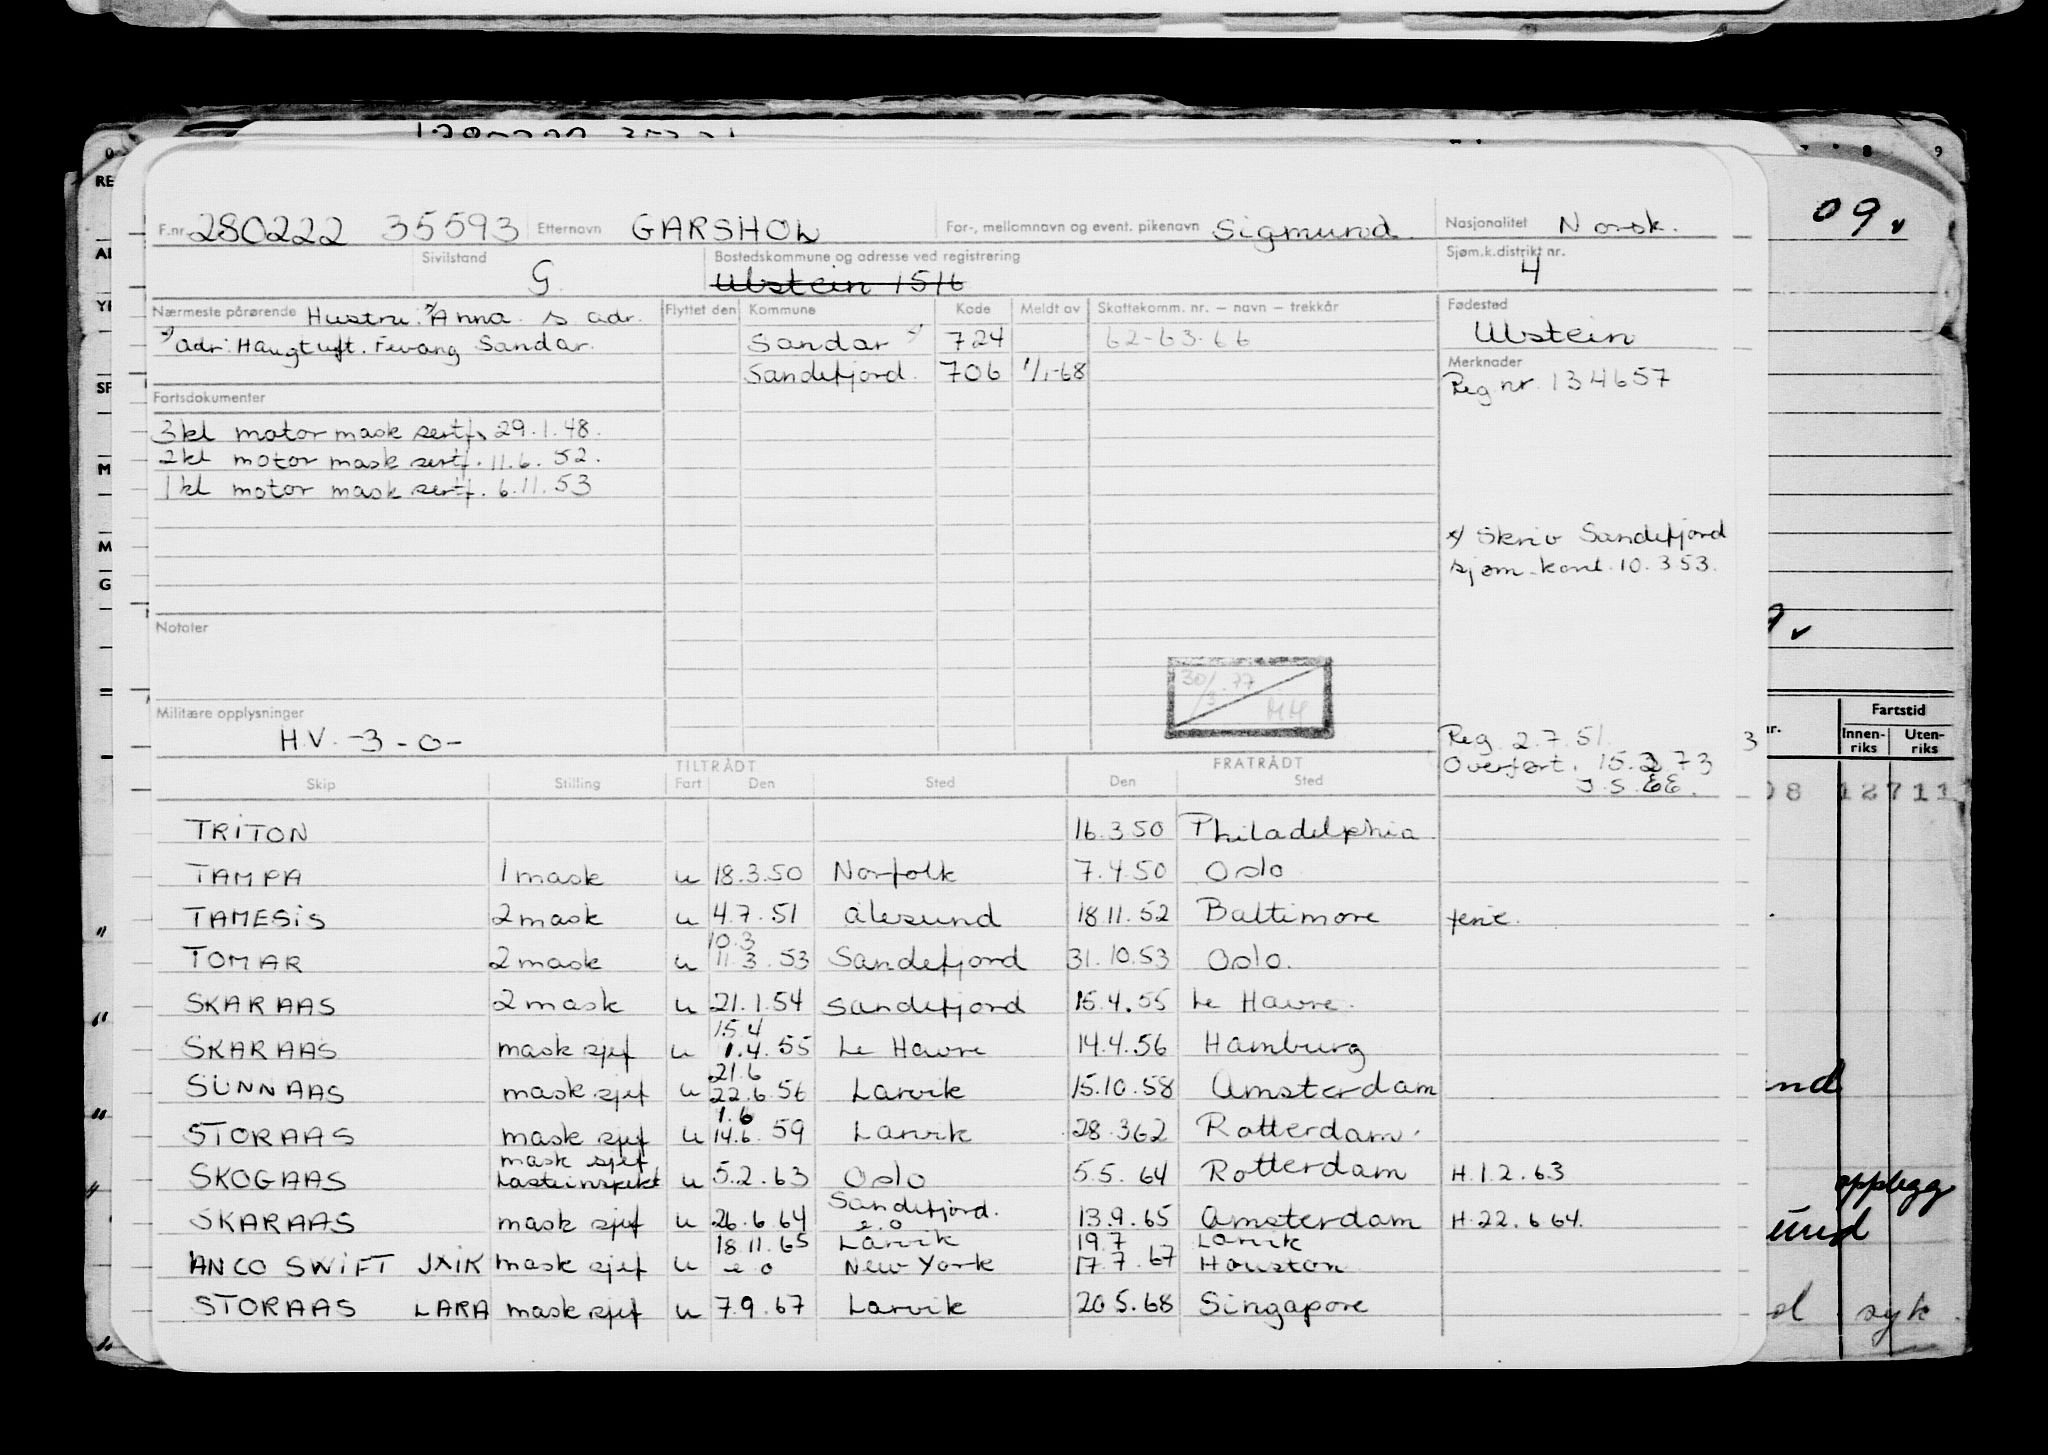 F.nr. 280222 35593 Etternavn GARSHOL For-, mellomnavn og event. pikenavn Sigmund. Nasjonalitet Norsk.
Sivilstand G. Bostedskommune og adresse ved registrering Ulstein 1516 Sjøm.k.distrikt nr. 4
Nærmeste pårørende Hustru: Anna s. adr. Flyttet den Kommune Kode Meldt av Skattekomm. nr. – navn – trekkår Fødested
adr: Haugtuft. Fevang Sandar. Sandar 724 62-63-66 Ulstein
Sandefjord. 706 1/1-68 Merknader
Reg nr. 134657
Fartsdokumenter
3 kl motor mask sertf. 29.1.48.
2 kl motor mask sertf. 11.6.52.
1 kl motor mask sertf. 6.11.53
x/ Skriv Sandefjord
sjøm.kont. 10.3.53.
Notater
30/3.77
Militære opplysninger
H.V. -3-0-
Reg. 2.7.51. 3
Overført. 15.2.73
TILTRÅDT FRATRÅDT
Skip Stilling Fart Den Sted Den Sted
TRITON 16.3.50 Philadelphia
TAMPA 1 mask u 18.3.50 Norfolk 7.4.50 Oslo
TAMESIS 2 mask u 4.7.51 Ålesund 18.11.52 Baltimore ferie.
10.3
TOMAR 2 mask u 11.3.53 Sandefjord 31.10.53 Oslo.
SKARAAS 2 mask u 21.1.54 Sandefjord 15.4.55 Le Havre.
15.4
SKARAAS mask sjef u 1.4.55 Le Havre 14.4.56 Hamburg
21.6
SUNNAAS mask sjef u 22.6.56 Larvik 15.10.58 Amsterdam
1.6
STORAAS mask sjef u 14.6.59 Larvik 28.3.62 Rotterdam.
mask sjef
SKOGAAS u 5.2.63 Oslo 5.5.64 Rotterdam H.1.2.63
Sandefjord.
SKARAAS mask sjef u 26.6.64 e.o 13.9.65 Amsterdam H.22.6.64.
18.11.65 Larvik 19.7 Larvik
ANCO SWIFT JXIK mask sjef u e o New York 17.7.67 Houston
STORAAS LARA mask sjef u 7.9.67 Larvik 20.5.68 Singapore
09.
Fartstid
Innen-
riks
Uten-
riks
12711
opplegg
syk.